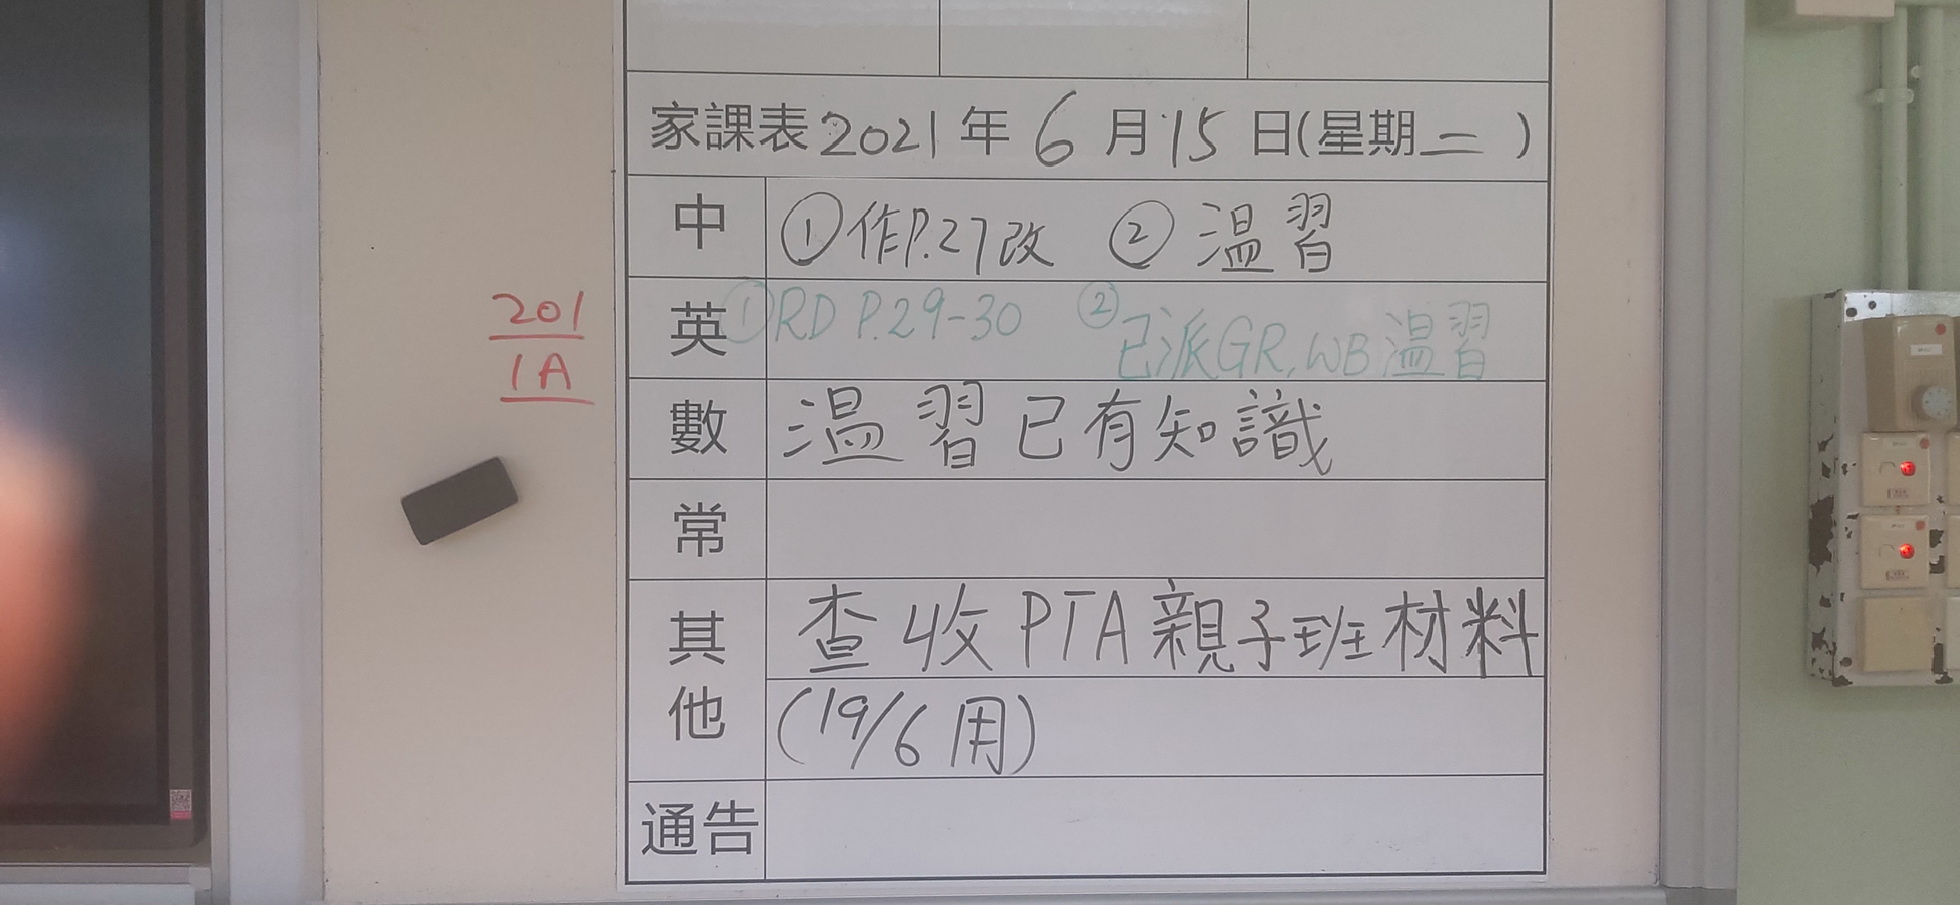 家課表2021年6月15日(星期二)
中 ①作P.27改 ②温習
英 ①RD P.29-30 ②已派GR,WB温習
201
1A
數 温習已有知識
常
其他 查收PTA親子班材料
(19/6用)
通告